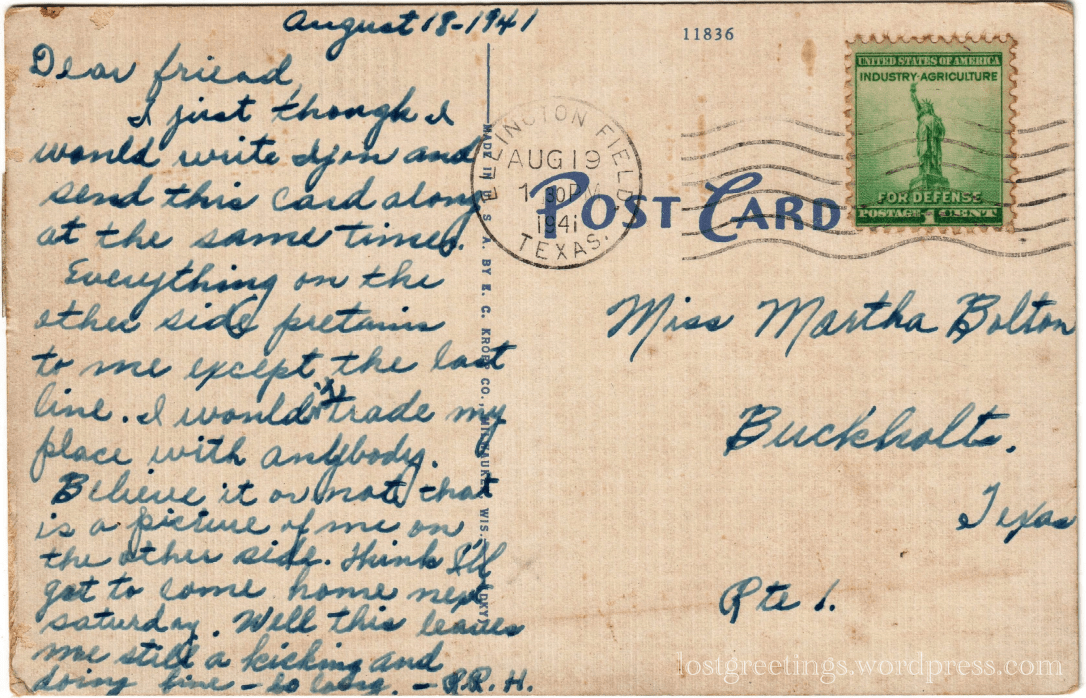 August 18-1941
Dear friend,
I just though I
would write you and
send this card along
at the same time.
Everything on the
other side pretains
to me except the last
line. I wouldn't trade my
place with anybody.
Believe it or not that
is a picture of me on
the other side. Think I'll
got to come home next
saturday. Well this leaves
me still a kicking and
doing fine - so long. - R.R.H.
MADE IN U. S. A. BY E. C. KROPP CO., MILWAUKEE, WIS.
11836
ELLINGTON FIELD
AUG 19
1941
TEXAS.
POST CARD
UNITED STATES OF AMERICA
INDUSTRY·AGRICULTURE
FOR DEFENSE
POSTAGE 1 CENT
Miss Martha Bolton
Buckholts,
Texas
Rte 1.
lostgreetings.wordpress.com